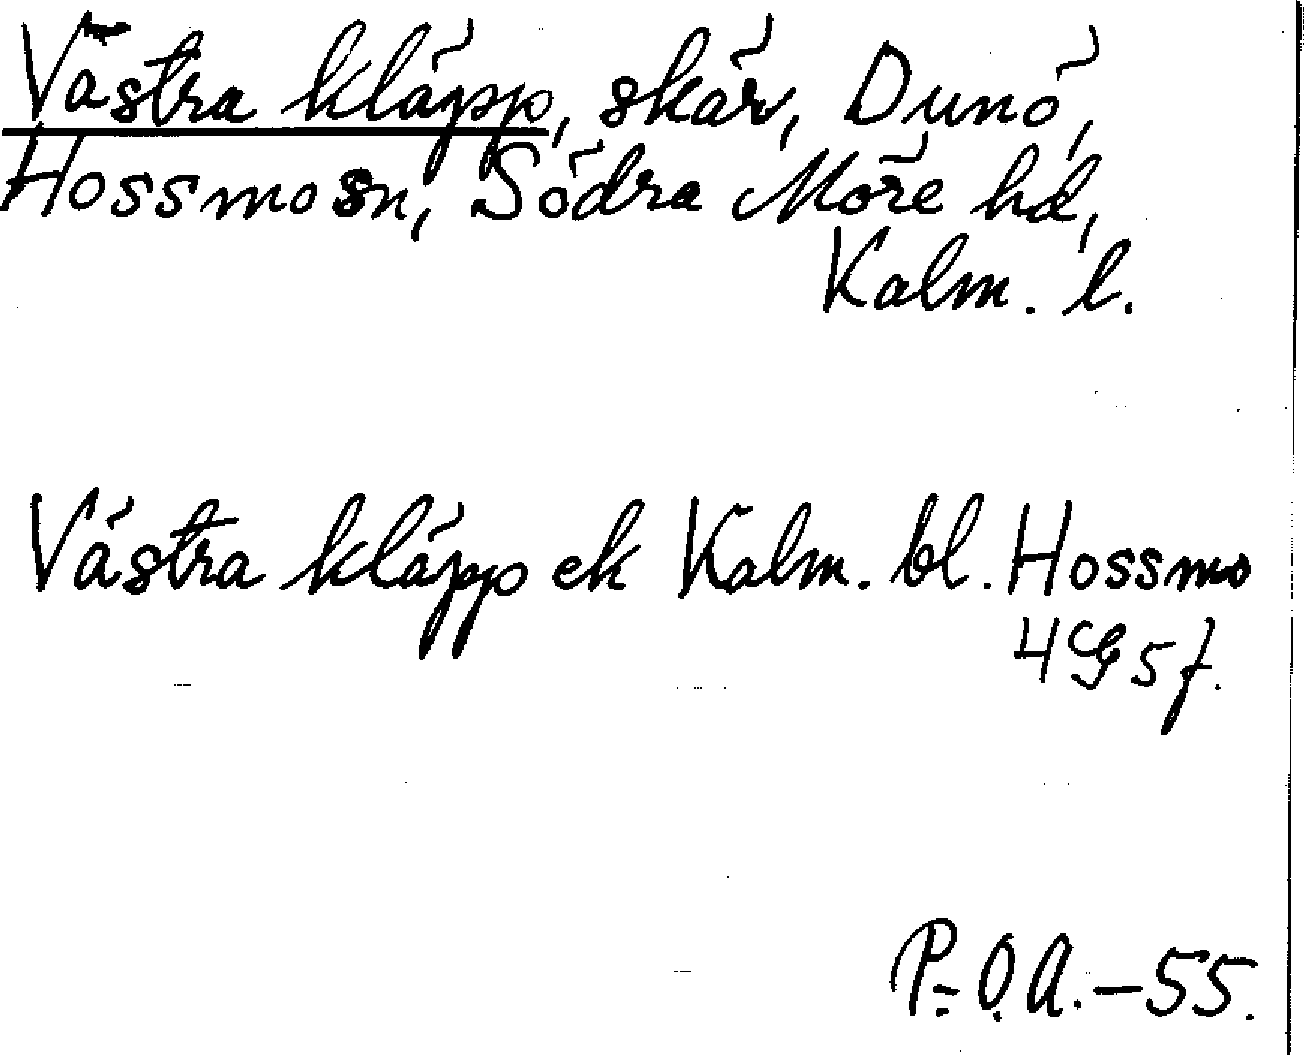 Västra kläpp, skär, Dunö,
Hossmo sn, Södra Möre hd,
Kalm. l.
Västra kläpp ek Kalm. bl. Hossmo
4G5f.
P.-O.A.-55.